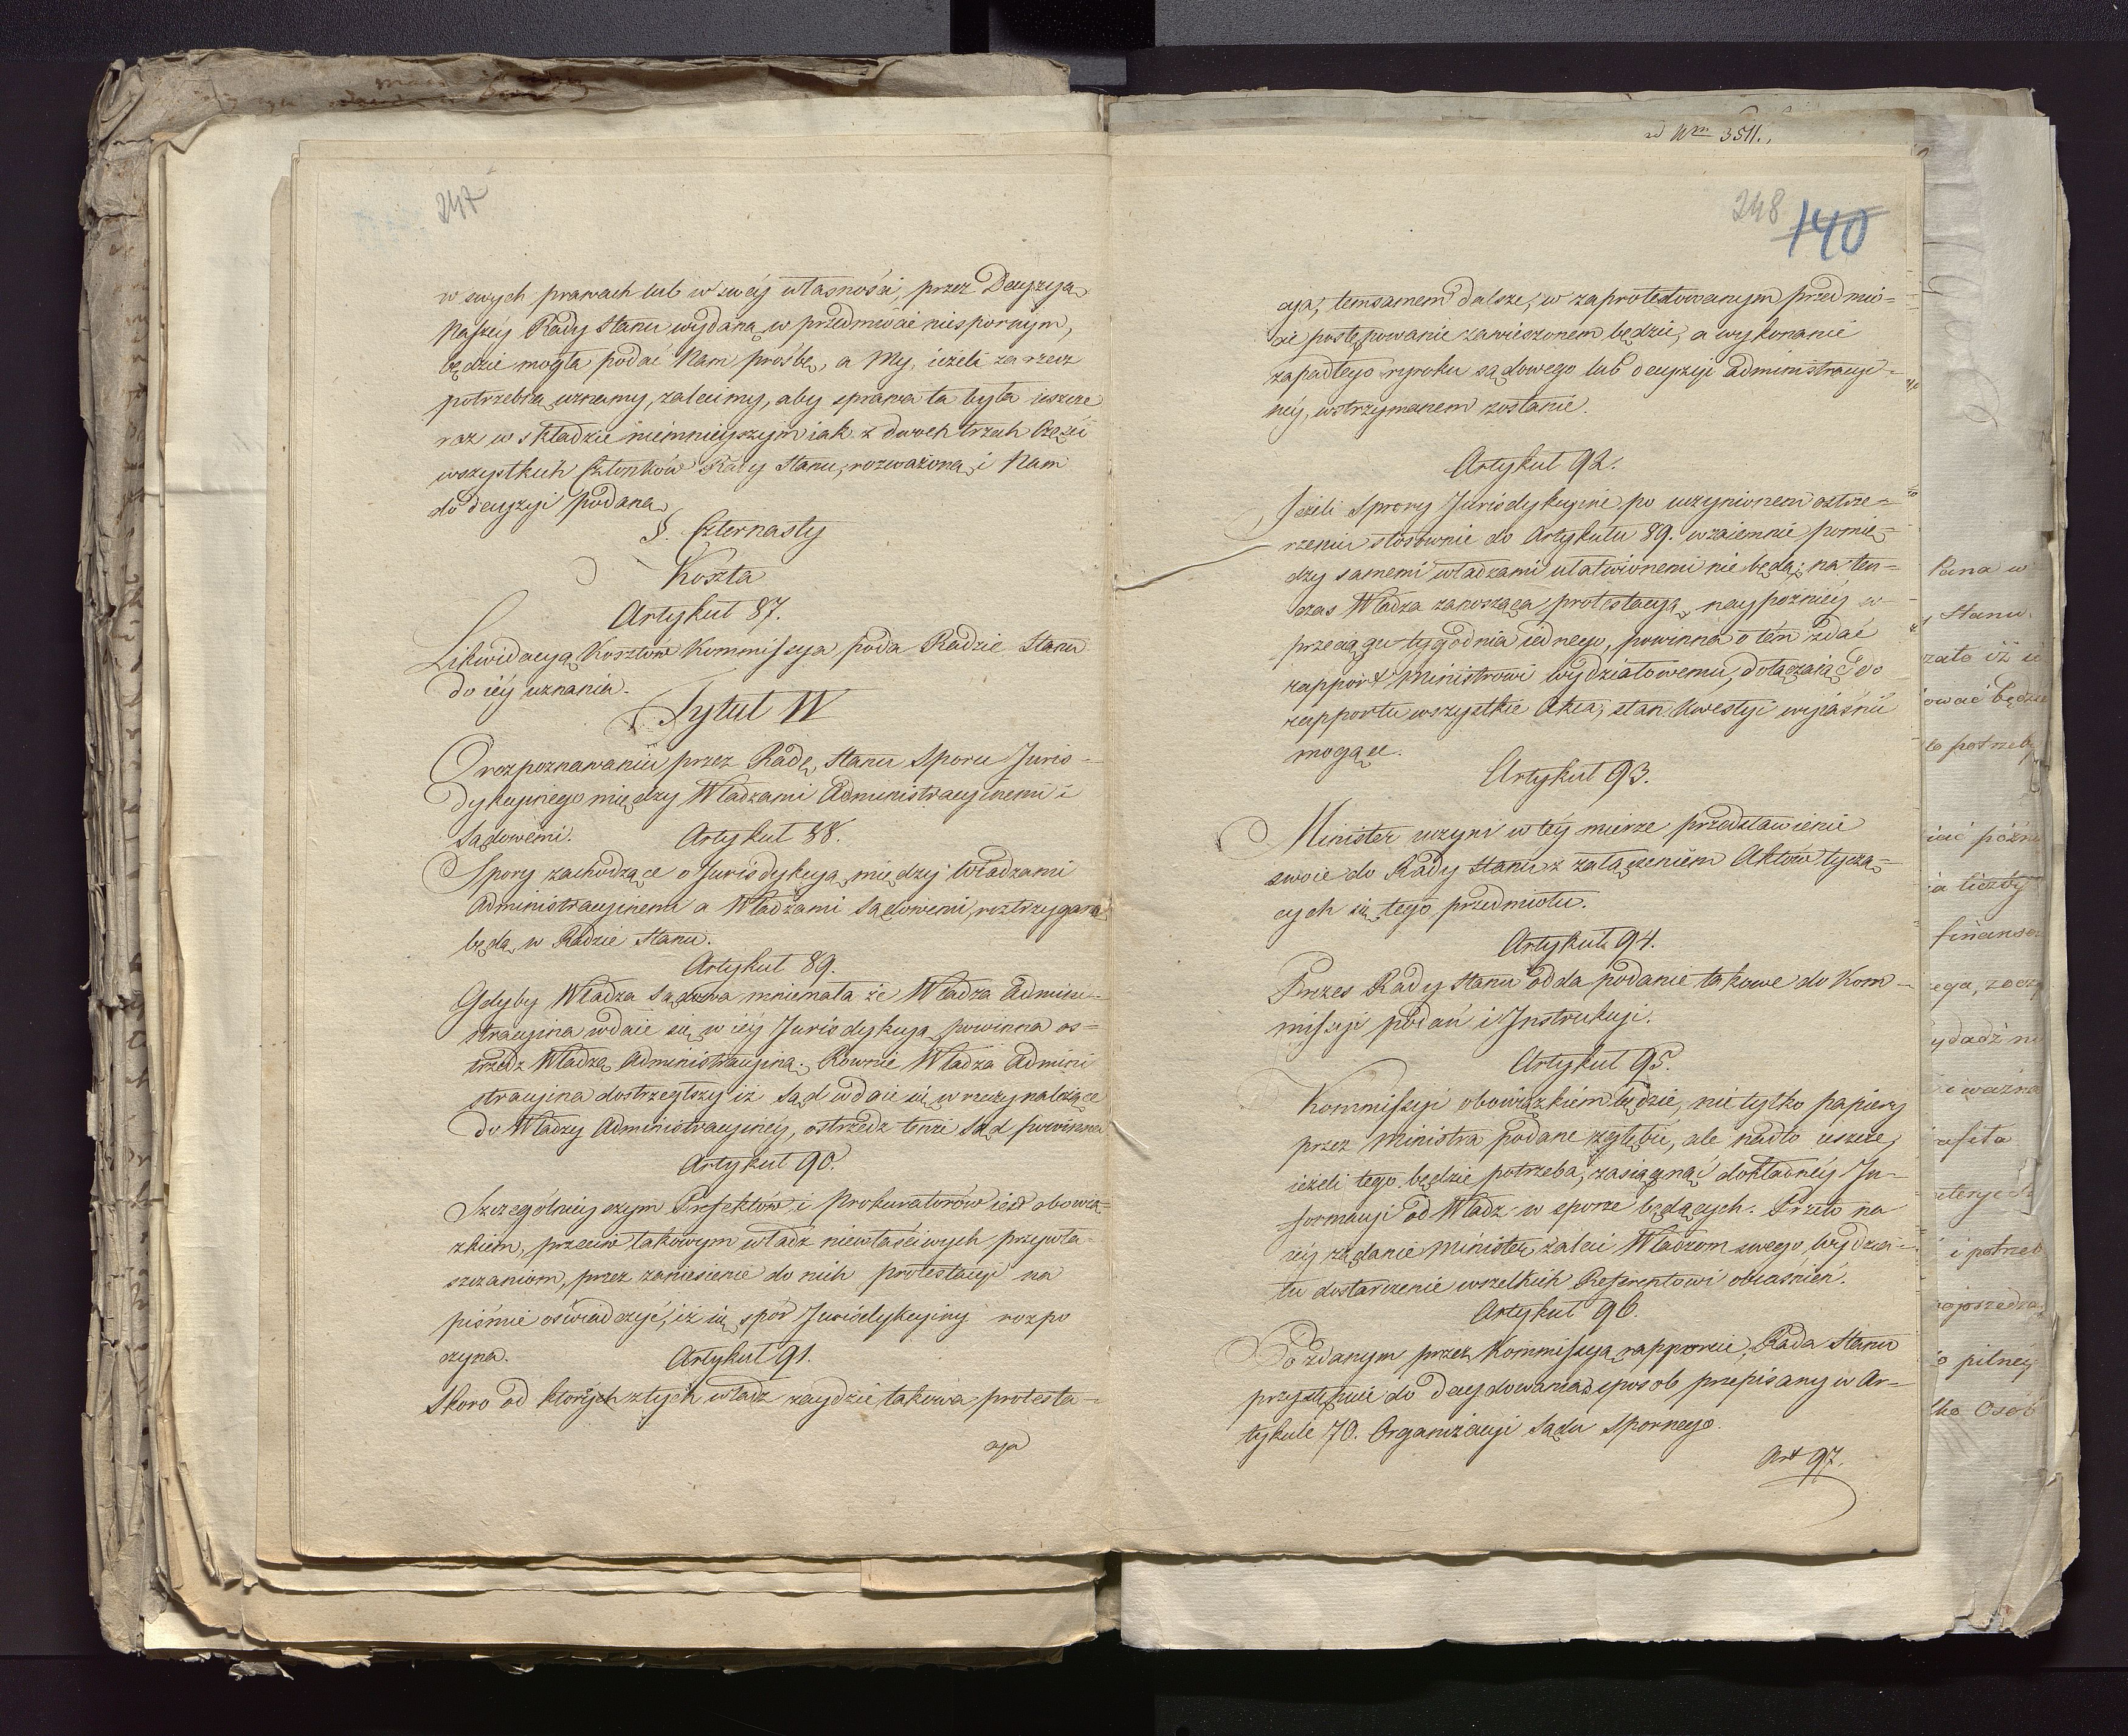 247
w swych prawach lub w swéy własnośći, przez Decyzyą
Naszéy Rady Stanu wydaną w przedmiocie niespornym,
będzie mogła podać Nam prośbę, a My, ieżeli za rzecz
potrzebną uznamy, zalecimy, aby sprawa ta była ieszcze
raz w składzie niemnieyszym iak z dwóch trzech Części
wszystkich Członków Rady Stanu, rozważona, i Nam
do decyzyi podana.
§. Czternasty
Koszta
Artykuł 87.
Likwidacyą Kosztów Kommissya poda Radzie Stanu
do iéy uznania.
Tytuł IV
O rozpoznawaniu przez Radę Stanu Sporu Juris=
dykcyinego między Władzami Administracyinemi i
Sądowemi. Artykuł 88.
Spory zachodzące o Jurisdykcyą między Władzami
Administracyinemi a Władzami Sądowemi, roztrzygane
będą w Radzie Stanu.
Artykuł 89.
Gdyby Władza Sądowa mniemała że Władza Admini=
stracyina wdaie się w iéy Jurisdykcyą powinna os=
trzedz Władzę Administracyiną. Równie Władza Admini
stracyina dostrzegłszy iż Sąd wdaie się w rzeczy należące
do Władzy Administracyinéy, ostrzedz tenże Sąd powinna
Artykuł 90.
Szczególnieyszym Prefektów i Prokuratorów iest obowią=
zkiem, przeciw takowym władz niewłaściwych przywła=
szczaniom, przez zaniesienie do nich protestacyi na
piśmie oświadczyć, iż się spór Jurisdykcyiny rozpo
czyna. Artykuł 91.
Skoro od któréych z tych władz zaydzie takowa protesta=
cya
ad Nrm 3511.
248 140
cya, temsamem dalsze, w zaprotestowanym przedmio=
cie postępowanie zawieszonem będzie, a wykonanie
zapadłego wyroku sądowego lub decyzyi administracyi=
néy, wstrzymanem zostanie.
Artykuł 92.
Jeżeli Spory Jurisdykcyine po uczynionem ostrze=
rzeniu stosownie do Artykułu 89. wzaiemnie pomię=
dzy samemi władzami ułatwionemi nie będą; na ten=
czas Władza zanosząca protestacyą, naypoźniéy w
przeciągu tygodnia iednego, powinna o tém zdać
rapport Ministrowi Wydziałowemu, dołączaiąc do
rapportu wszystkie Akta, stan kwestyi wyiaśnić
mogące.
Artykuł 93.
Minister uczyni w téy mierze przedstawienie
swoie do Rady Stanu z załączeniem Aktów tyczą=
cych się tego przedmiotu.
Artykuł 94.
Prezes Rady Stanu odda podanie takowe do Kom=
missyi podań i Instrukcyi.
Artykuł 95.
Kommissyi obowiązkiem będzie, nie tylko papiery
przez Ministra podane zgłębić, ale nadto ieszcze,
ieżeli tego będzie potrzeba, zasięgnąć dokładnéy In=
formacyi od Władz w sporze będących. Przeto na
iéy żądanie Minister zaleci Władzom swego Wydzia=
łu dostarczenie wszelkich Referentowi obiaśnień.
Artykuł 96.
Po zdanym przez Kommissyą rapporcie, Rada Stanu
przystąpi do decydowania sposob przepisany w Ar=
tykule 70. Organizacyi Sądu Spornego.
Art 97.
Pana w
Stanu
ować będzie
to potrzeb
ia liczby
finanso
i ważna
i potrzeb
pilnéy
Osób